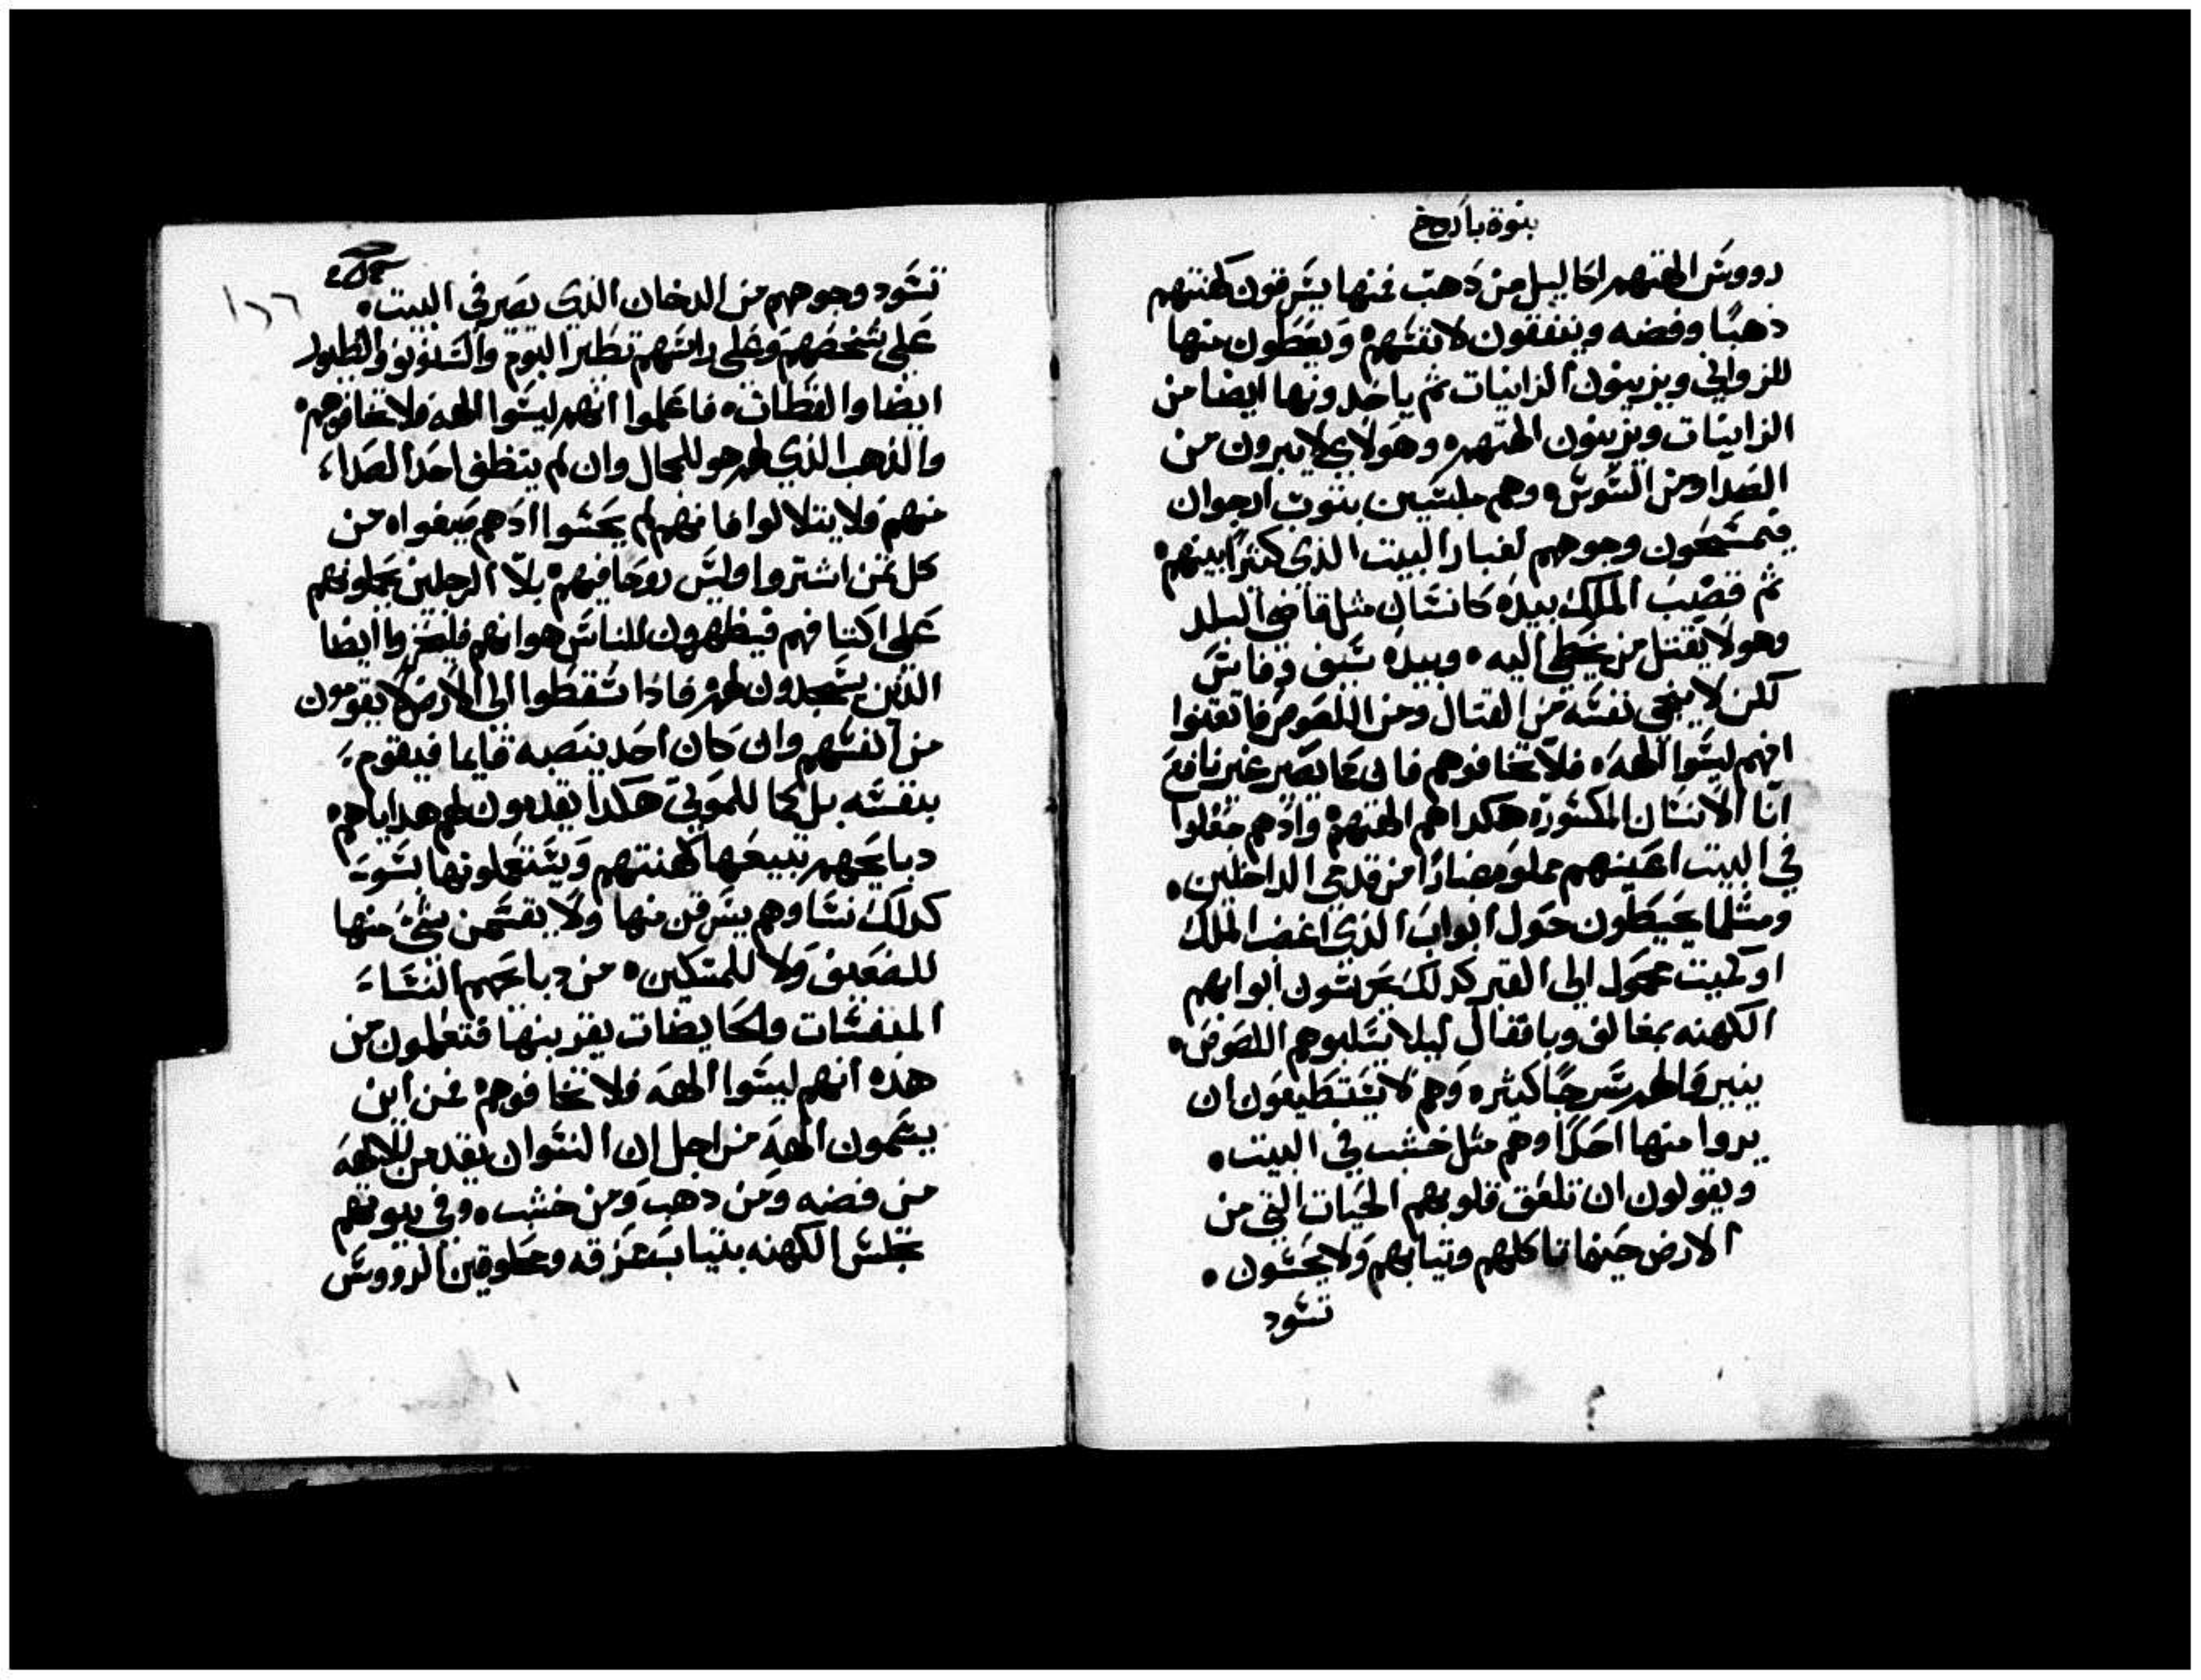 بنوة باروخ
رووس الهتهم اكاليل من دهب فمنها يسرقون كهنتهم
ذهبًا وفضه وينفقون لانفسهم ويعطون منها
للزواني ويزينون الزانيات ثم ياخدونها ايضا من
الزانيات ويزينون الهتهم وهولاي لا يبرون من
الصدا ومن السوس وهم ملبسين بتوب ارجوان
فيمسحون وجوههم لغبار البيت الذي كثيرًا بينهم
ثم قضيب الملك بيده كانسان مثل قاضي البلد
وهو لا يقتل من يخطي اليه وبيده سيف وفاس
لكن لا ينجي نفسه من القتال ومن اللصوص فاتقنوا
انهم ليسوا الهه فلا تخافوهم فان كما يصير غير نافع
انا الانسان المكسور هكدا هم الهتهم وادهم جعلوا
في البيت اعينهم مملوه غبارًا من قدمي الداخلين
ومثلما يحيطون حول ابواب الذي اغضب الملك
او كميت محمول الى القبر كدلك يحرسون ابوابهم
الكهنه بمغالق وباقفال ليلا يسلبوهم اللصوص
ينيرون لهم سرجًا كثيره وهم لا يستطيعون ان
يروا منها احدًا وهم مثل خشب في البيت
ويقولون ان تلعق قلوبهم الحيات التي من
الارض حينما تاكلهم وتيابهم ولا يحسون
تسود
١٦٦
تسود وجوههم من الدخان الذي يصير في البيت
على شخصهم وعلى راسهم تطير البوم والسنونو والطيور
ايضا والقطاط فاعلموا انهم ليسوا الهه فلا تخافوهم
والذهب الذي لهم هو للجمال وان لم ينظف احد الصدا
منهم فلا يتلالوا فانهم لم يحسوا ادهم صيغوا من
كل تمن اشتروا وليس روحا فيهم بلا الرجلين يحملونهم
على اكتافهم فيظهرون للناس هوانهم فليخزوا ايضا
الذين يسجدون لهم فاذا سقطوا الى الارض لا يقومون
من انفسهم وان كان احد ينصبه قايما فيقوم
بنفسه بل كما للموتى هكدا يقدمون لهم هداياهم
دبايحهم تبيعها كهنتهم ويستعملونها بسو
كدلك نساوهم يسرقن منها ولا يقسمن شي منها
للضعيف ولا للمسكين من دبايحهم النسا
المنفسات والحايضات يقربنها فتعلمون من
هذه انهم ليسوا الهه فلا تخافوهم فمن اين
يسمون الهه من اجل ان النسوان يقدمن للالهه
من فضه ومن دهب ومن خشب وفي بيوتهم
تجلس الكهنه بتياب ممزقه ومحلوقين الرووس